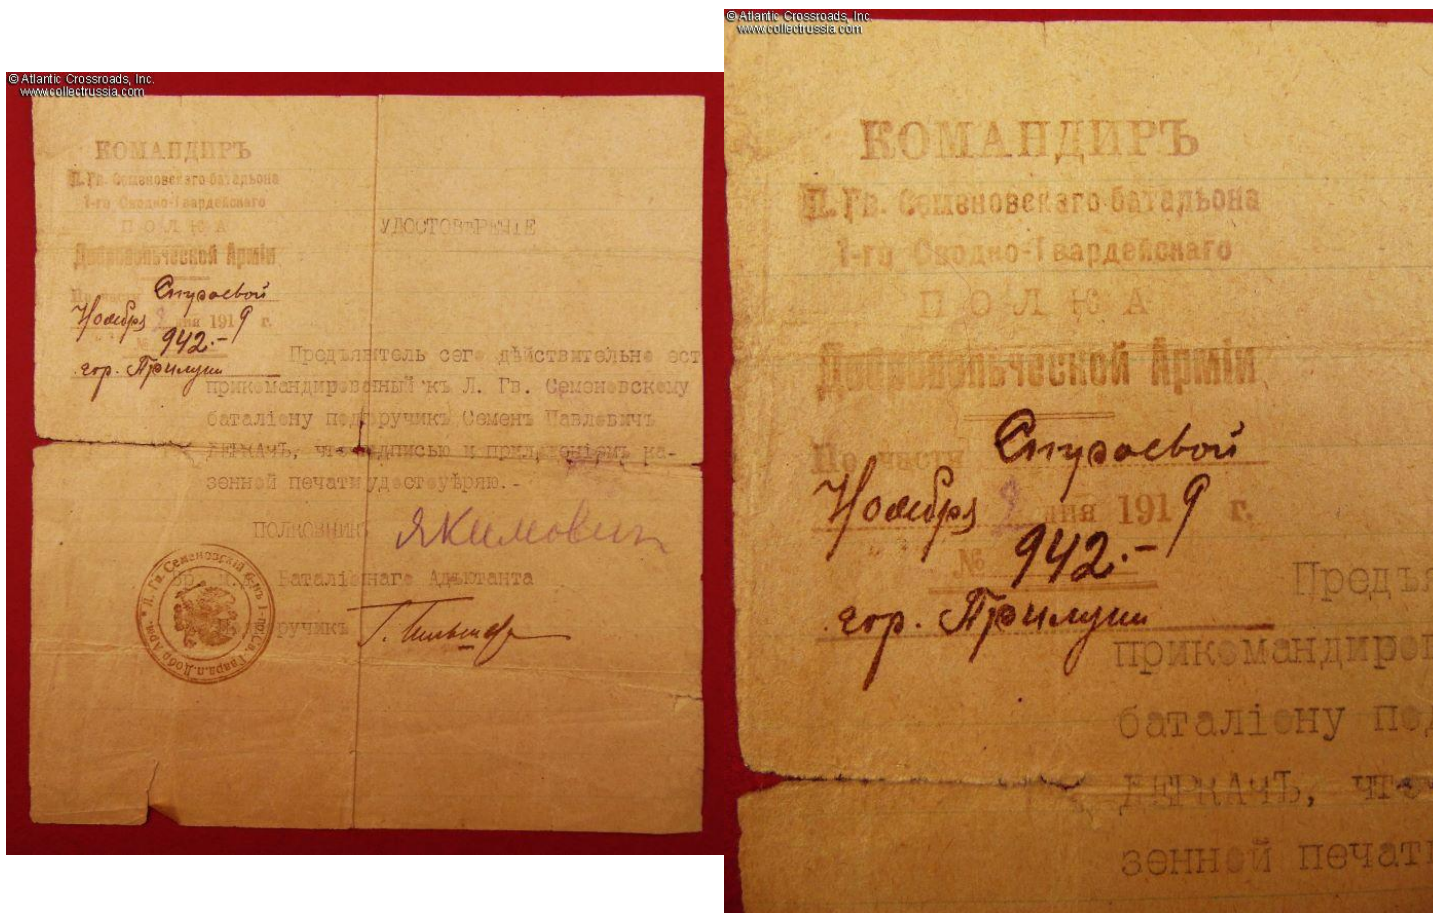 © Atlantic Crossroads, Inc.
www.collectrussia.com
КОМАНДИРЪ
Л. Гв. Семеновскаго батальона
1-го Сводно-Гвардейскаго
ПОЛКА
Добровольческой Арміи
По части Строевой
Ноября 9 дня 1919 г.
№ 942.-
гор. Прилуки
УДОСТОВѢРЕНІЕ
Предъявитель сего дѣйствительно ест
прикомандированный къ Л. Гв. Семеновскому
баталіону подпоручикъ Семенъ Павловичъ
ДЕРКАЧЪ, что подписью и приложеніемъ ка-
зенной печати удостовѣряю.-
ПОЛКОВНИКЪ Якимович
Баталіоннаго Адъютанта
Л. Гв. Семеновскій
© Atlantic Crossroads, Inc.
www.collectrussia.com
КОМАНДИРЪ
Л. Гв. Семеновскаго батальона
1-го Сводно-Гвардейскаго
ПОЛКА
Добровольческой Арміи
По части Строевой
Ноября 9 дня 1919 г.
№ 942.-
гор. Прилуки
Предъя
прикомандиров
баталіону под
ДЕРКАЧЪ, что
зенной печати